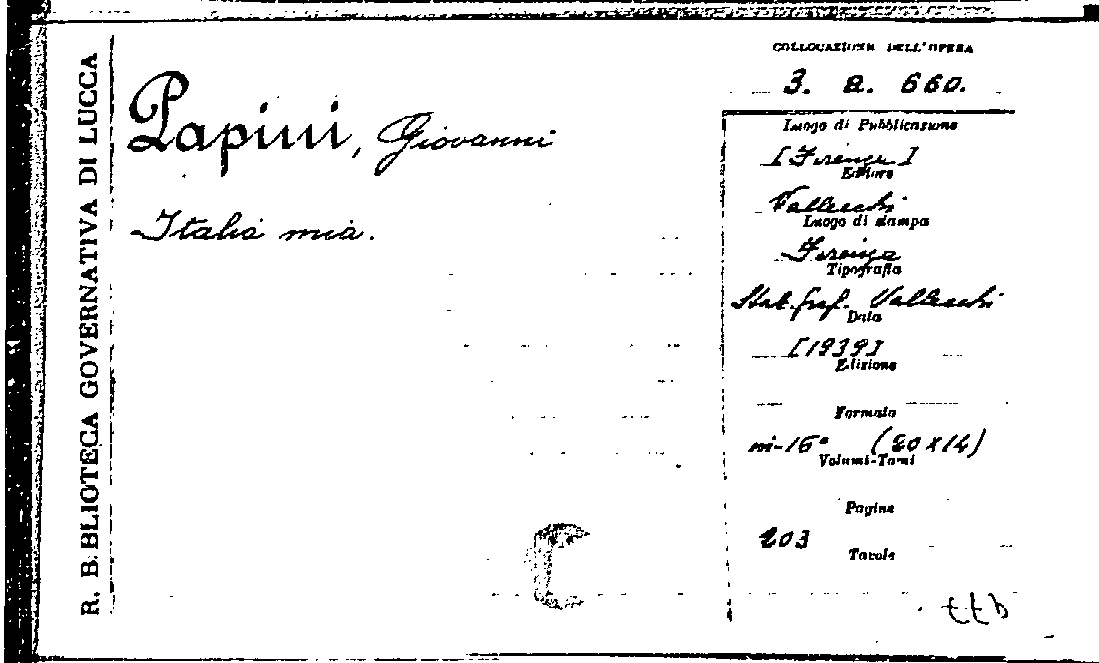 R. BIBLIOTECA GOVERNATIVA DI LUCCA
Papini, Giovanni
Italia mia.
COLLOCAZIONE DELL'OPERA
3. a. 660.
Luogo di Pubblicazione
[Firenze]
Editore
Vallecchi
Luogo di stampa
Firenze
Tipografia
Stab. graf. Vallecchi
Data
[1939]
Edizione
Formato
in-16° (20x14)
Volumi-Tomi
Pagine
203
Tavole
C
ttb